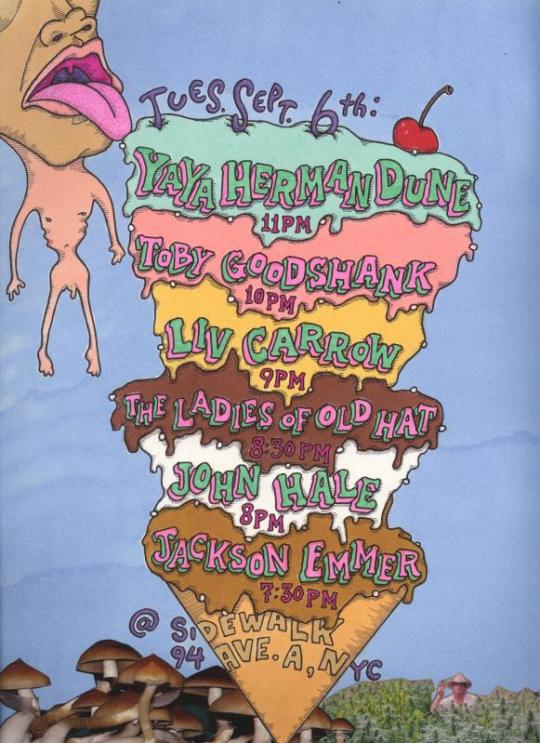 TUES. SEPT. 6th:
YAYA HERMAN DUNE
11PM
TOBY GOODSHANK
10PM
LIV CARROW
9PM
THE LADIES OF OLD HAT
8:30PM
JOHN HALE
8PM
JACKSON EMMER
7:30PM
@ SIDEWALK
94 AVE. A, NYC